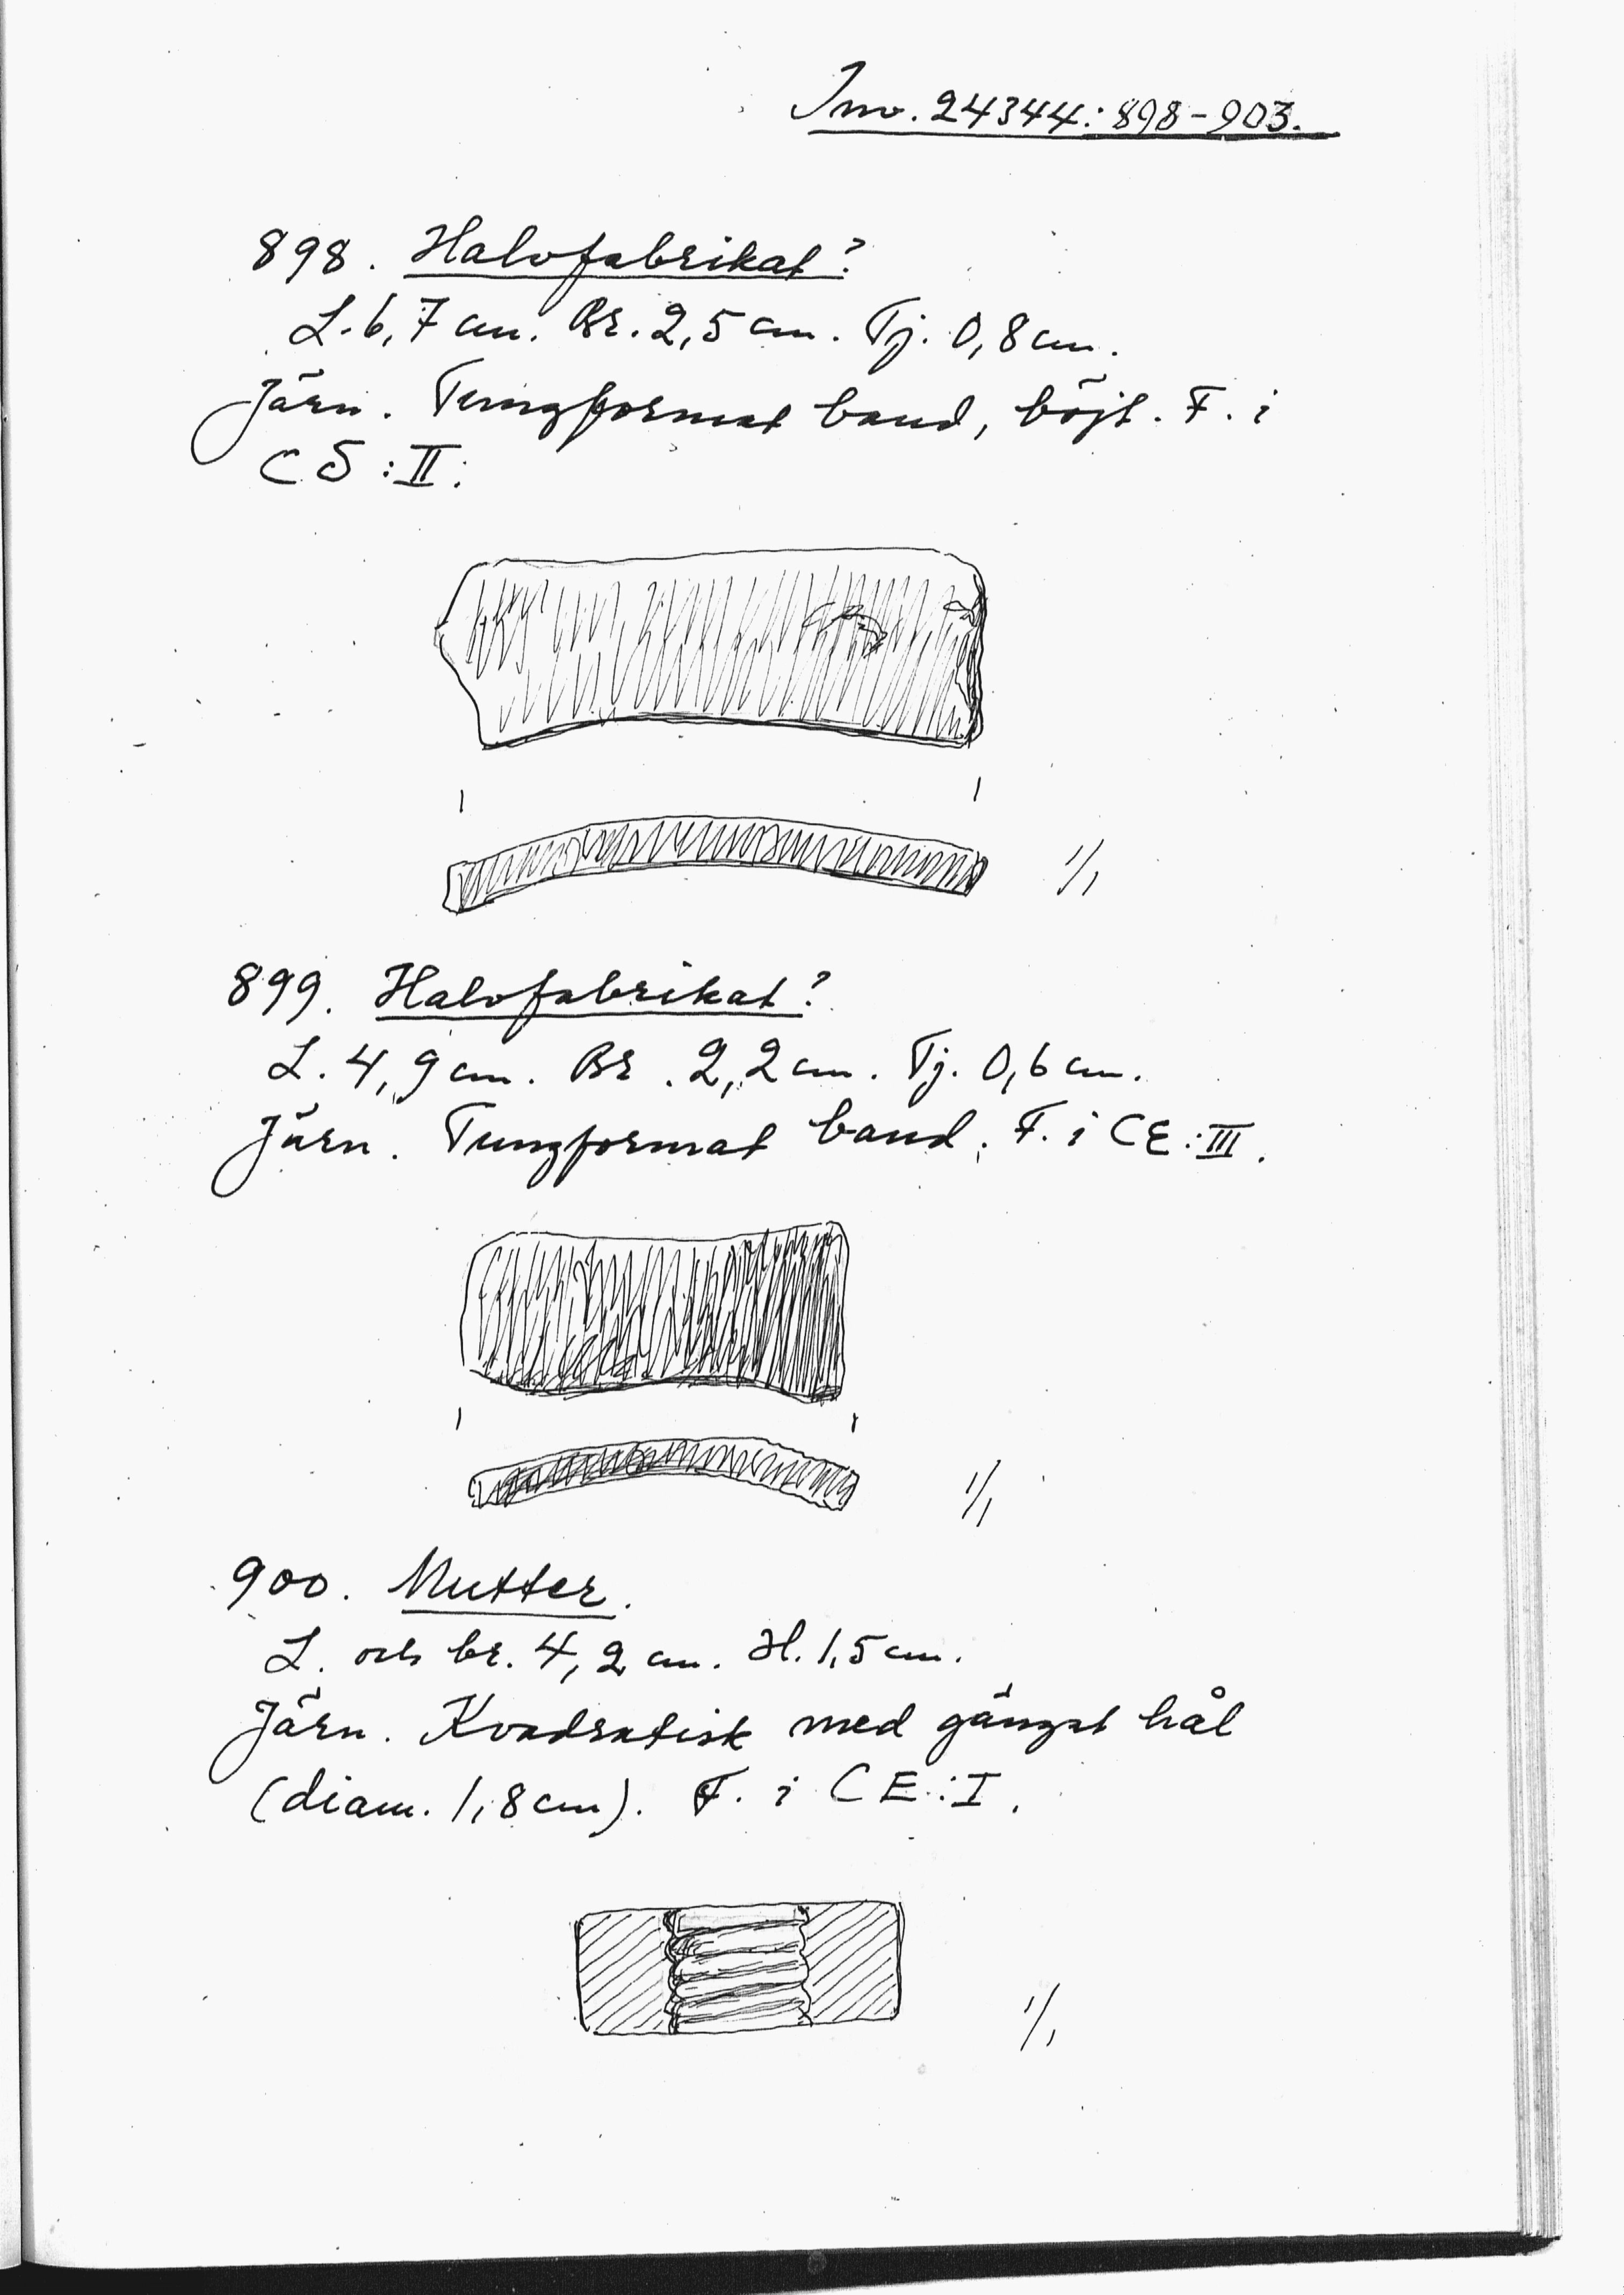 Inv. 24344:898-903.
898. Halvfabrikat?
L. 6,7 cm. Br. 2,5 cm. Tj. 0,8 cm.
Järn. Tungformat band, böjt. F. i
CS:II.
1/1
899. Halvfabrikat?
L. 4,9 cm. Br. 2,2 cm. Tj. 0,6 cm.
Järn. Tungformat band. F. i CE:III.
1/1
900. Mutter.
L. och br. 4,2 cm. H. 1,5 cm.
Järn. Kvadratisk med gängat hål
(diam. 1,8 cm). F. i CE:I.
1/1